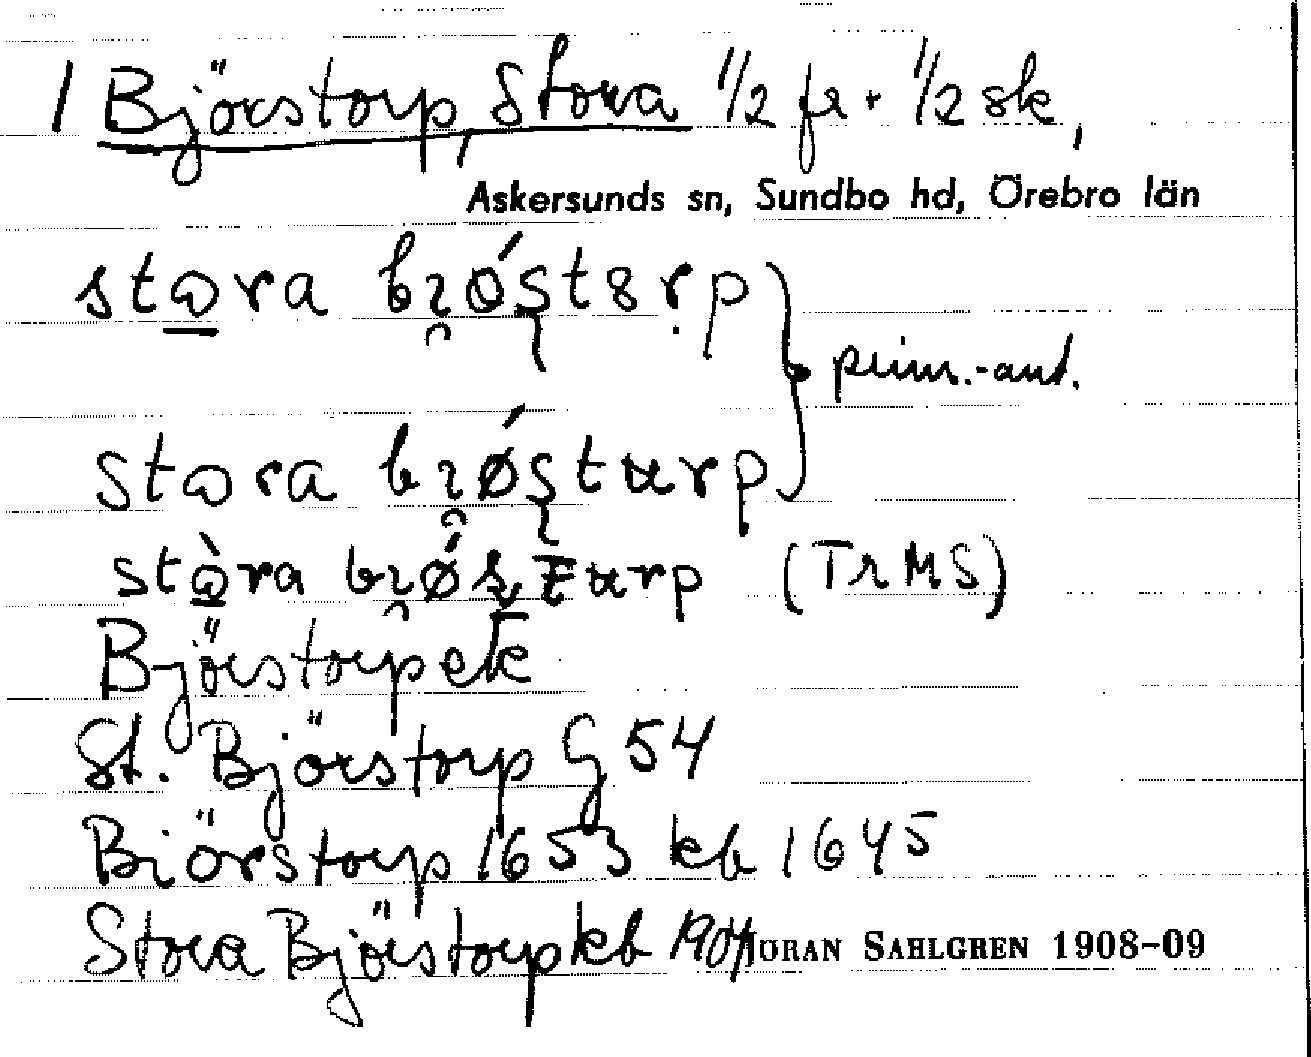 1 Björstorp, Stora 1/2 fr + 1/2 sk,
Askersunds sn, Sundbo hd, Örebro län
stora
prim.-ant.
stora
(TrMS)
Björstorp ek
St. Björstorp G 54
Biörstorp 1653 kb 1645
Stora Björstorp kb 1904 JÖRAN SAHLGREN 1908-09